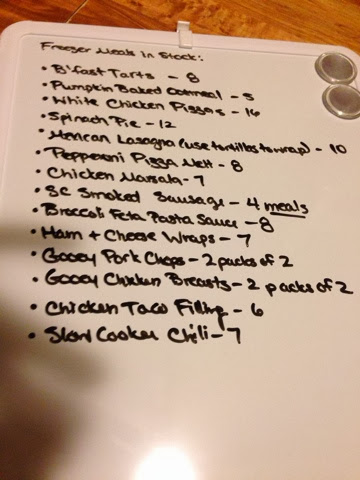 Freezer Meals In Stock:
• B'fast Tarts - 8
• Pumpkin Baked Oatmeal - 5
• White Chicken Pizzas - 16
• Spinach Pie - 12
• Mexican Lasagna (use tortillas to wrap) - 10
• Pepperoni Pizza Melt - 8
• Chicken Marsala - 7
• SC Smoked Sausage - 4 meals
• Broccoli Feta Pasta Sauce - 8
• Ham + Cheese Wraps - 7
• Gooey Pork Chops - 2 packs of 2
• Gooey Chicken Breasts - 2 packs of 2
• Chicken Taco Filling - 6
• Slow Cooker Chili - 7